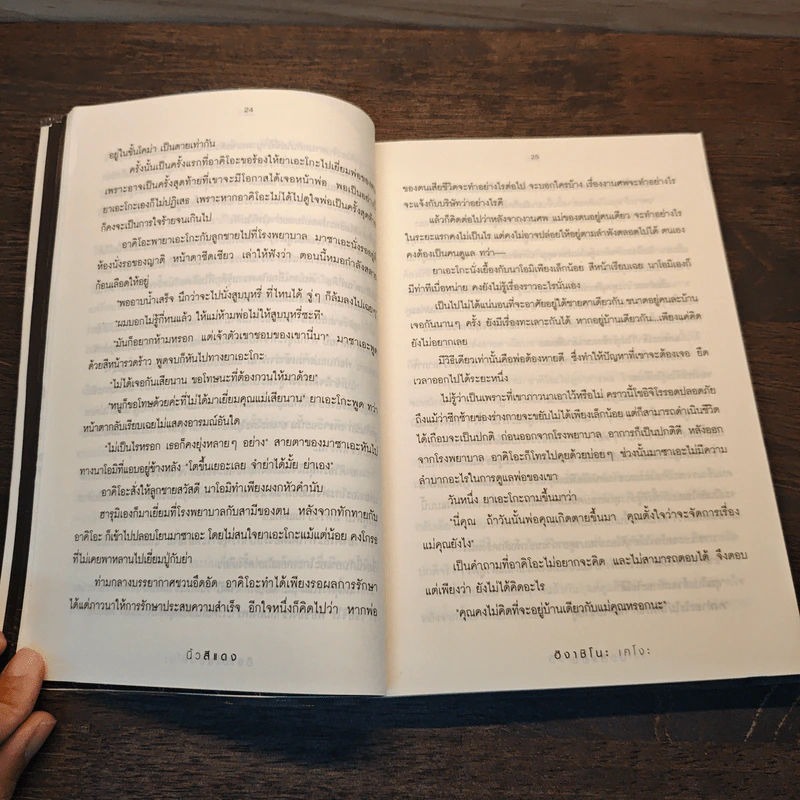 24
อยู่ในขั้นโคม่า เป็นตายเท่ากัน
ครั้งนั้นเป็นครั้งแรกที่อาคิโอะขอร้องให้ยาเอะโกะไปเยี่ยมพ่อของตน
เพราะอาจเป็นครั้งสุดท้ายที่เขาจะมีโอกาสได้เจอหน้าพ่อ พอเป็นอย่างนี้
ยาเอะโกะเองก็ไม่ปฏิเสธ เพราะหากอาคิโอะไม่ได้ไปดูใจพ่อเป็นครั้งสุดท้าย
ก็คงจะเป็นการใจร้ายจนเกินไป
อาคิโอะพายาเอะโกะกับลูกชายไปที่โรงพยาบาล มาซาเอะนั่งรออยู่ใน
ห้องนั่งรอของญาติ หน้าตาซีดเซียว เล่าให้ฟังว่า ตอนนี้หมอกำลังสลาย
ก้อนเลือดให้อยู่
"พออาบน้ำเสร็จ นึกว่าจะไปนั่งสูบบุหรี่ ที่ไหนได้ จู่ๆ ก็ล้มลงไปเฉยๆ"
"ผมบอกไม่รู้กี่หนแล้ว ให้แม่ห้ามพ่อไม่ให้สูบบุหรี่ซะที"
"มันก็อยากห้ามหรอก แต่เจ้าตัวเขาชอบของเขานี่นา" มาซาเอะพูด
ด้วยสีหน้ารวดร้าว พูดจบก็หันไปทางยาเอะโกะ
"ไม่ได้เจอกันเสียนาน ขอโทษนะที่ต้องกวนให้มาด้วย"
"หนูก็ขอโทษด้วยค่ะที่ไม่ได้มาเยี่ยมคุณแม่เสียนาน" ยาเอะโกะพูด ทว่า
หน้าตากลับเรียบเฉยไม่แสดงอารมณ์อันใด
"ไม่เป็นไรหรอก เธอก็คงยุ่งหลายๆ อย่าง" สายตาของมาซาเอะหันไป
ทางนาโอมิที่แอบอยู่ข้างหลัง "โตขึ้นเยอะเลย จำย่าได้มั้ย ย่าเอง"
อาคิโอะสั่งให้ลูกชายสวัสดี นาโอมิทำเพียงผงกหัวคำนับ
ฮารุมิเองก็มาเยี่ยมที่โรงพยาบาลกับสามีของตน หลังจากทักทายกับ
อาคิโอะ ก็เข้าไปปลอบโยนมาซาเอะ โดยไม่สนใจยาเอะโกะแม้แต่น้อย คงโกรธ
ที่ไม่เคยพาหลานไปเยี่ยมปู่กับย่า
ท่ามกลางบรรยากาศชวนอึดอัด อาคิโอะทำได้เพียงรอผลการรักษา
ได้แต่ภาวนาให้การรักษาประสบความสำเร็จ อีกใจหนึ่งก็คิดไปว่า หากพ่อ
นิ้วสีแดง
25
ของตนเสียชีวิตจะทำอย่างไรต่อไป จะบอกใครบ้าง เรื่องงานศพจะทำอย่างไร
จะแจ้งกับบริษัทว่าอย่างไรดี
แล้วก็คิดต่อไปว่าหลังจากงานศพ แม่ของตนอยู่คนเดียว จะทำอย่างไร
ในระยะแรกคงไม่เป็นไร แต่คงไม่อาจปล่อยให้อยู่ตามลำพังตลอดไปได้ ตนเอง
คงต้องเป็นคนดูแล ทว่า—
ยาเอะโกะนั่งเยื้องกับนาโอมิเพียงเล็กน้อย สีหน้าเรียบเฉย นาโอมิเองก็
มีท่าทีเบื่อหน่าย คงยังไม่รู้เรื่องราวอะไรนั่นเอง
เป็นไปไม่ได้แน่นอนที่จะอาศัยอยู่ใต้ชายคาเดียวกัน ขนาดอยู่คนละบ้าน
เจอกันนานๆ ครั้ง ยังมีเรื่องทะเลาะกันได้ หากอยู่บ้านเดียวกัน...เพียงแค่คิด
ยังไม่อยากเลย
มีวิธีเดียวเท่านั้นคือพ่อต้องหายดี ซึ่งทำให้ปัญหาที่เขาจะต้องเจอ ยืด
เวลาออกไปได้ระยะหนึ่ง
ไม่รู้ว่าเป็นเพราะที่เขาภาวนาเอาไว้หรือไม่ คราวนี้โชอิจิโรรอดปลอดภัย
ถึงแม้ว่าซีกซ้ายของร่างกายจะขยับไม่ได้เพียงเล็กน้อย แต่ก็สามารถดำเนินชีวิต
ได้เกือบจะเป็นปกติ ก่อนออกจากโรงพยาบาล อาการก็เป็นปกติดี หลังออก
จากโรงพยาบาล อาคิโอะก็โทรไปคุยด้วยบ่อยๆ ช่วงนั้นมาซาเอะไม่มีความ
ลำบากอะไรในการดูแลพ่อของเขา
วันหนึ่ง ยาเอะโกะถามขึ้นมาว่า
"นี่คุณ ถ้าวันนั้นพ่อคุณเกิดตายขึ้นมา คุณตั้งใจว่าจะจัดการเรื่อง
แม่คุณยังไง"
เป็นคำถามที่อาคิโอะไม่อยากจะคิด และไม่สามารถตอบได้ จึงตอบ
แต่เพียงว่า ยังไม่ได้คิดอะไร
"คุณคงไม่คิดที่จะอยู่บ้านเดียวกับแม่คุณหรอกนะ"
ฮิงาชิโนะ เคโงะ